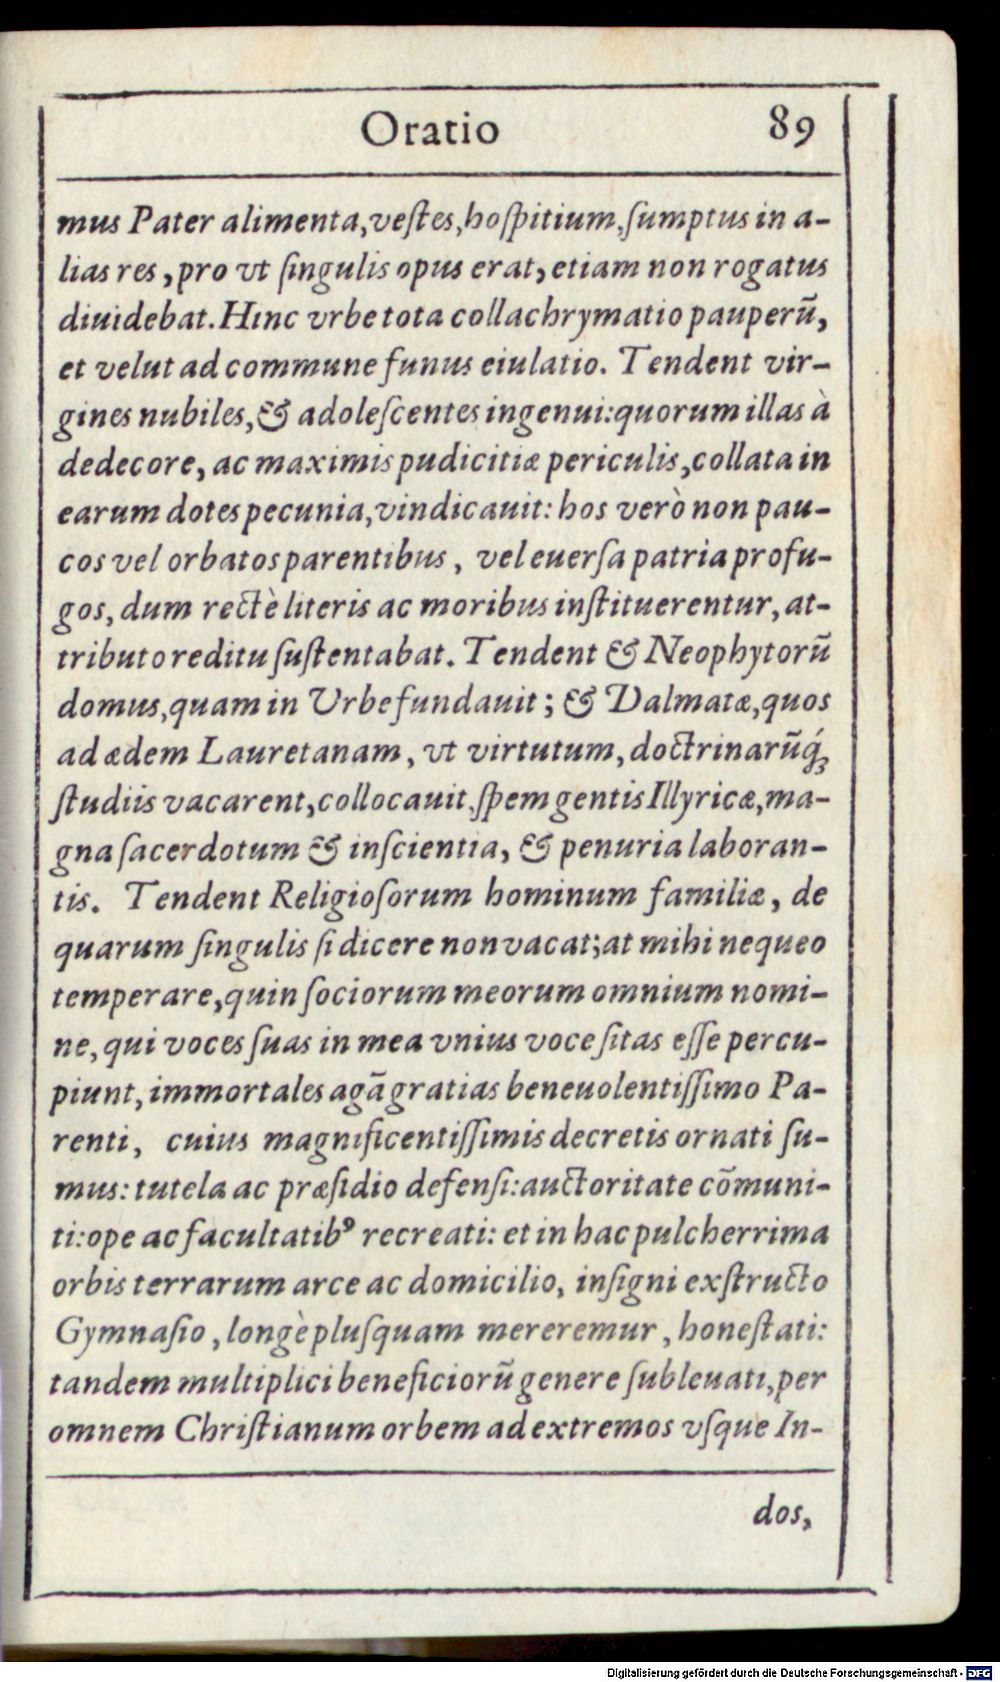 Oratio 89
mus Pater alimenta, veſtes, hoſpitium, ſumptus in a-
lias res, pro vt ſingulis opus erat, etiam non rogatus
diuidebat. Hinc vrbe tota collachrymatio pauperū,
et velut ad commune funus eiulatio. Tendent vir-
gines nubiles, & adoleſcentes ingenui: quorum illas à
dedecore, ac maximis pudicitiæ periculis, collata in
earum dotes pecunia, vindicauit: hos verò non pau-
cos vel orbatos parentibus, vel euerſa patria profu-
gos, dum rectè literis ac moribus inſtituerentur, at-
tributo reditu ſuſtentabat. Tendent & Neophytorū
domus, quam in Vrbe fundauit; & Dalmatæ, quos
ad ædem Lauretanam, vt virtutum, doctrinarūq́;
ſtudiis vacarent, collocauit, ſpem gentis Illyricæ, ma-
gna ſacerdotum & inſcientia, & penuria laboran-
tis. Tendent Religioſorum hominum familiæ, de
quarum ſingulis ſi dicere non vacat; at mihi nequeo
temperare, quin ſociorum meorum omnium nomi-
ne, qui voces ſuas in mea vnius voce ſitas eſſe percu-
piunt, immortales agā gratias beneuolentiſſimo Pa-
renti, cuius magnificentiſſimis decretis ornati ſu-
mus: tutela ac præſidio defenſi: auctoritate cōmuni-
ti: ope ac facultatibꝰ recreati: et in hac pulcherrima
orbis terrarum arce ac domicilio, inſigni exſtructo
Gymnaſio, longè pluſquam mereremur, honeſtati:
tandem multiplici beneficiorū genere ſubleuati, per
omnem Chriſtianum orbem ad extremos vſque In-
dos,
Digitalisierung gefördert durch die Deutsche Forschungsgemeinschaft - DFG